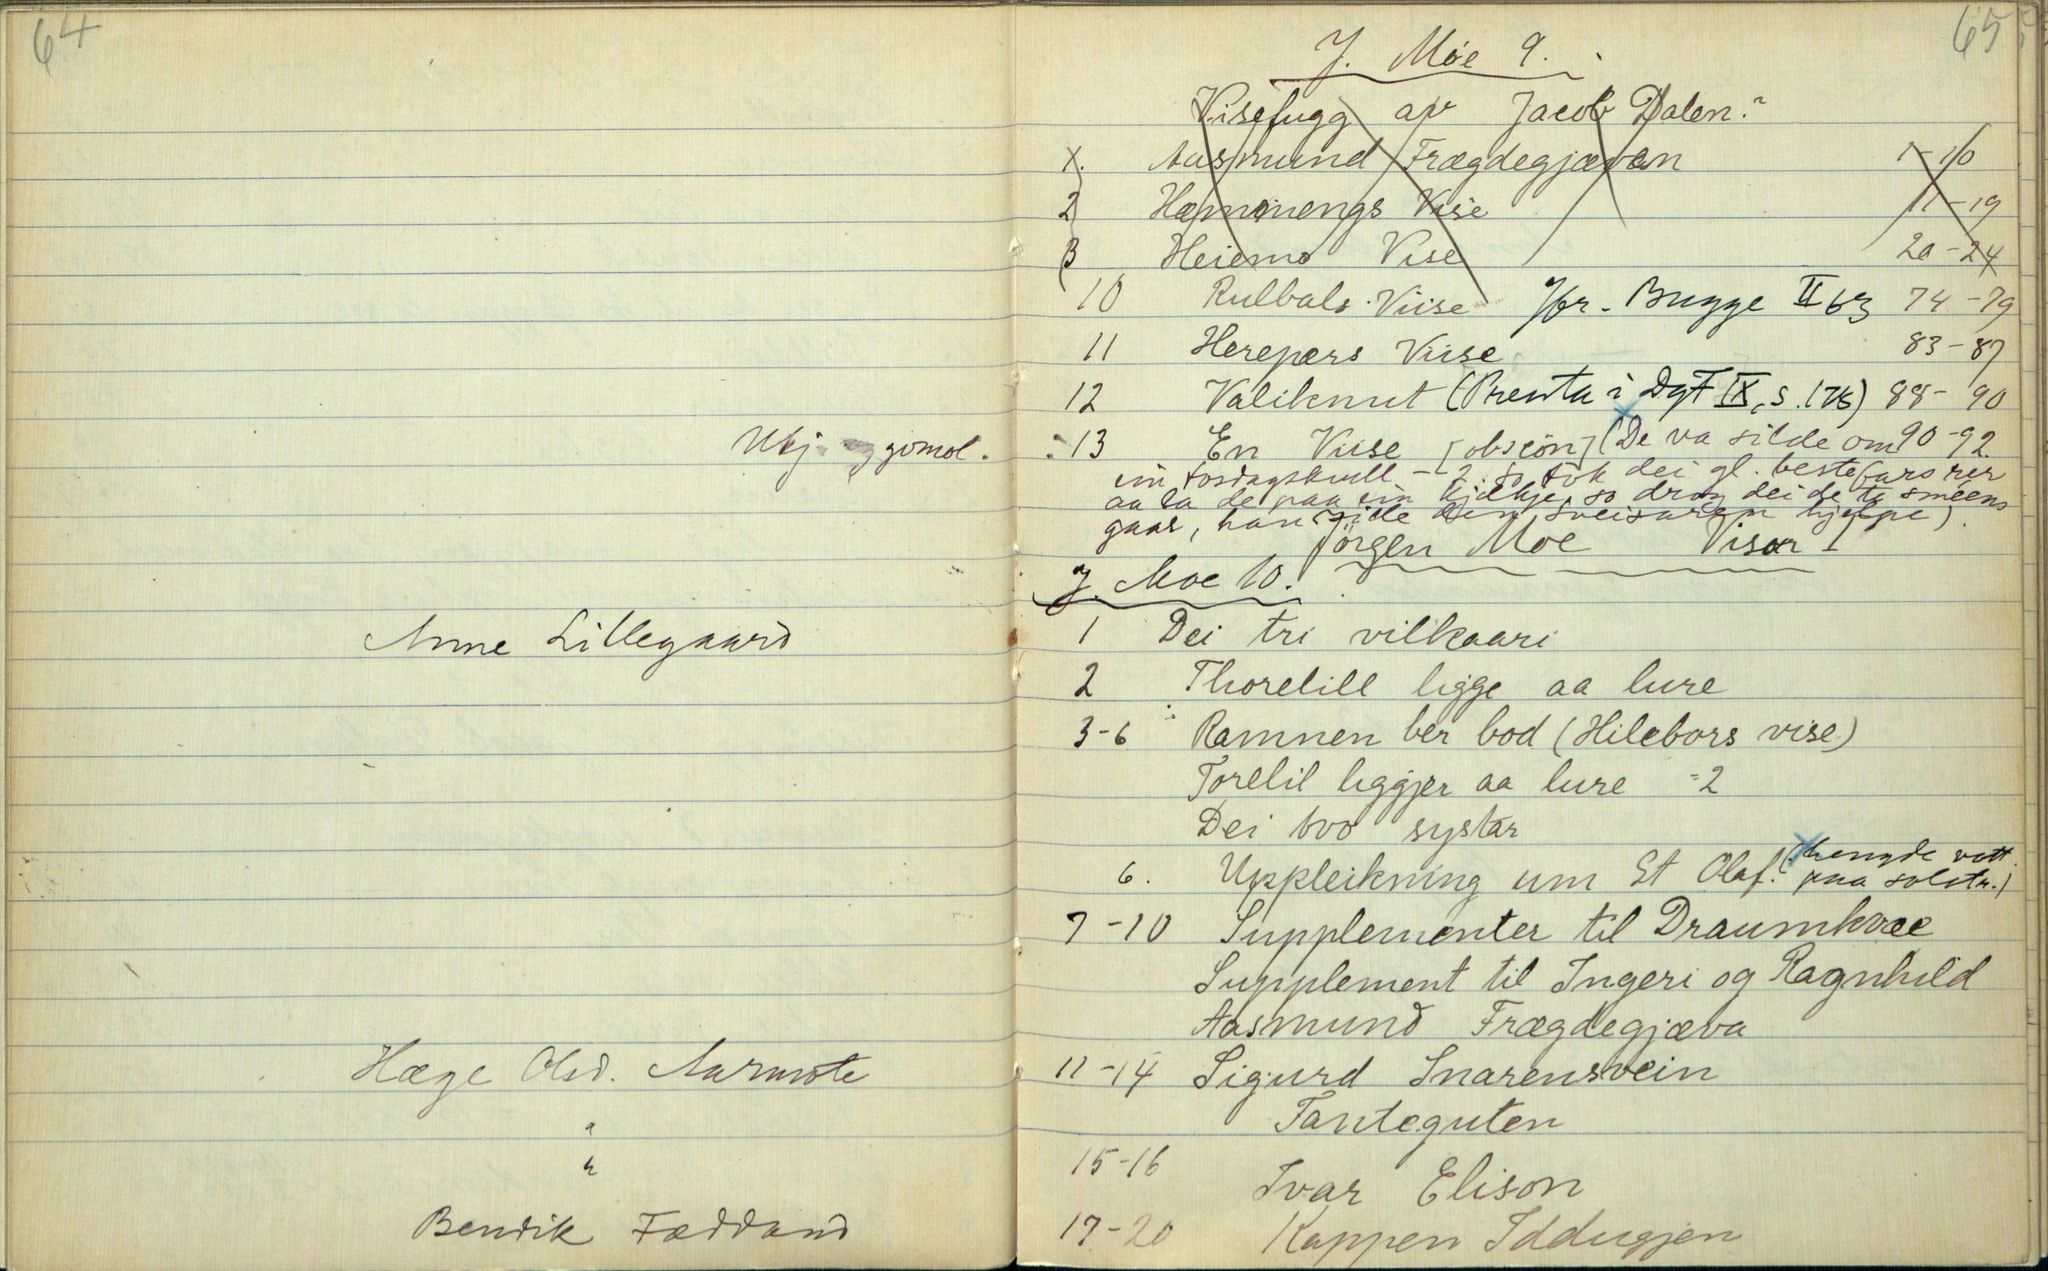 64
Utj. og gomol.
Anne Lillegaard
Hæge Olsd. Aarmote
"
"
Bendik Fæddand
65
J. Moe 9.
Visefugg av Jacob Dalen?
1. Aasmund Frægdegjævan 1-10
2 Hæmmengs Vise 11-19
3 Heiemo Vise 20-24
10 Rulbals Viise Jfr. Bugge II 63 74-79
11 Herepærs Viise 83-87
12 Valiknut (Prenta i DgF IX, s. 178) 88-90
13 En Viise [obscön] (De va silde om 90-92
ein torsdagskvell - 2. so tok dei gl. bestefars rer
aa la de paa ein kjelkje, so drog dei de te smeens
gaar, han ville den sveisaren hjelpe).
Jörgen Moe Visor I
J. Moe 10.
1 Dei tri vilkaari
2 Thorelill ligge aa lure
3-6 Ramnen ber bod (Hilebors vise)
Torelil liggjer aa lure =2
Dei tvo systar
6. Uppleikning um St Olaf. (hengde vott.
paa solstr.)
7-10 Supplementer til Draumkvæe
Supplement til Ingeri og Ragnhild
Aasmund Frægdegjæva
11-14 Sigurd Snarensvein
Tanteguten
15-16
Ivar Elison
17-20 Kappen Iddugjen